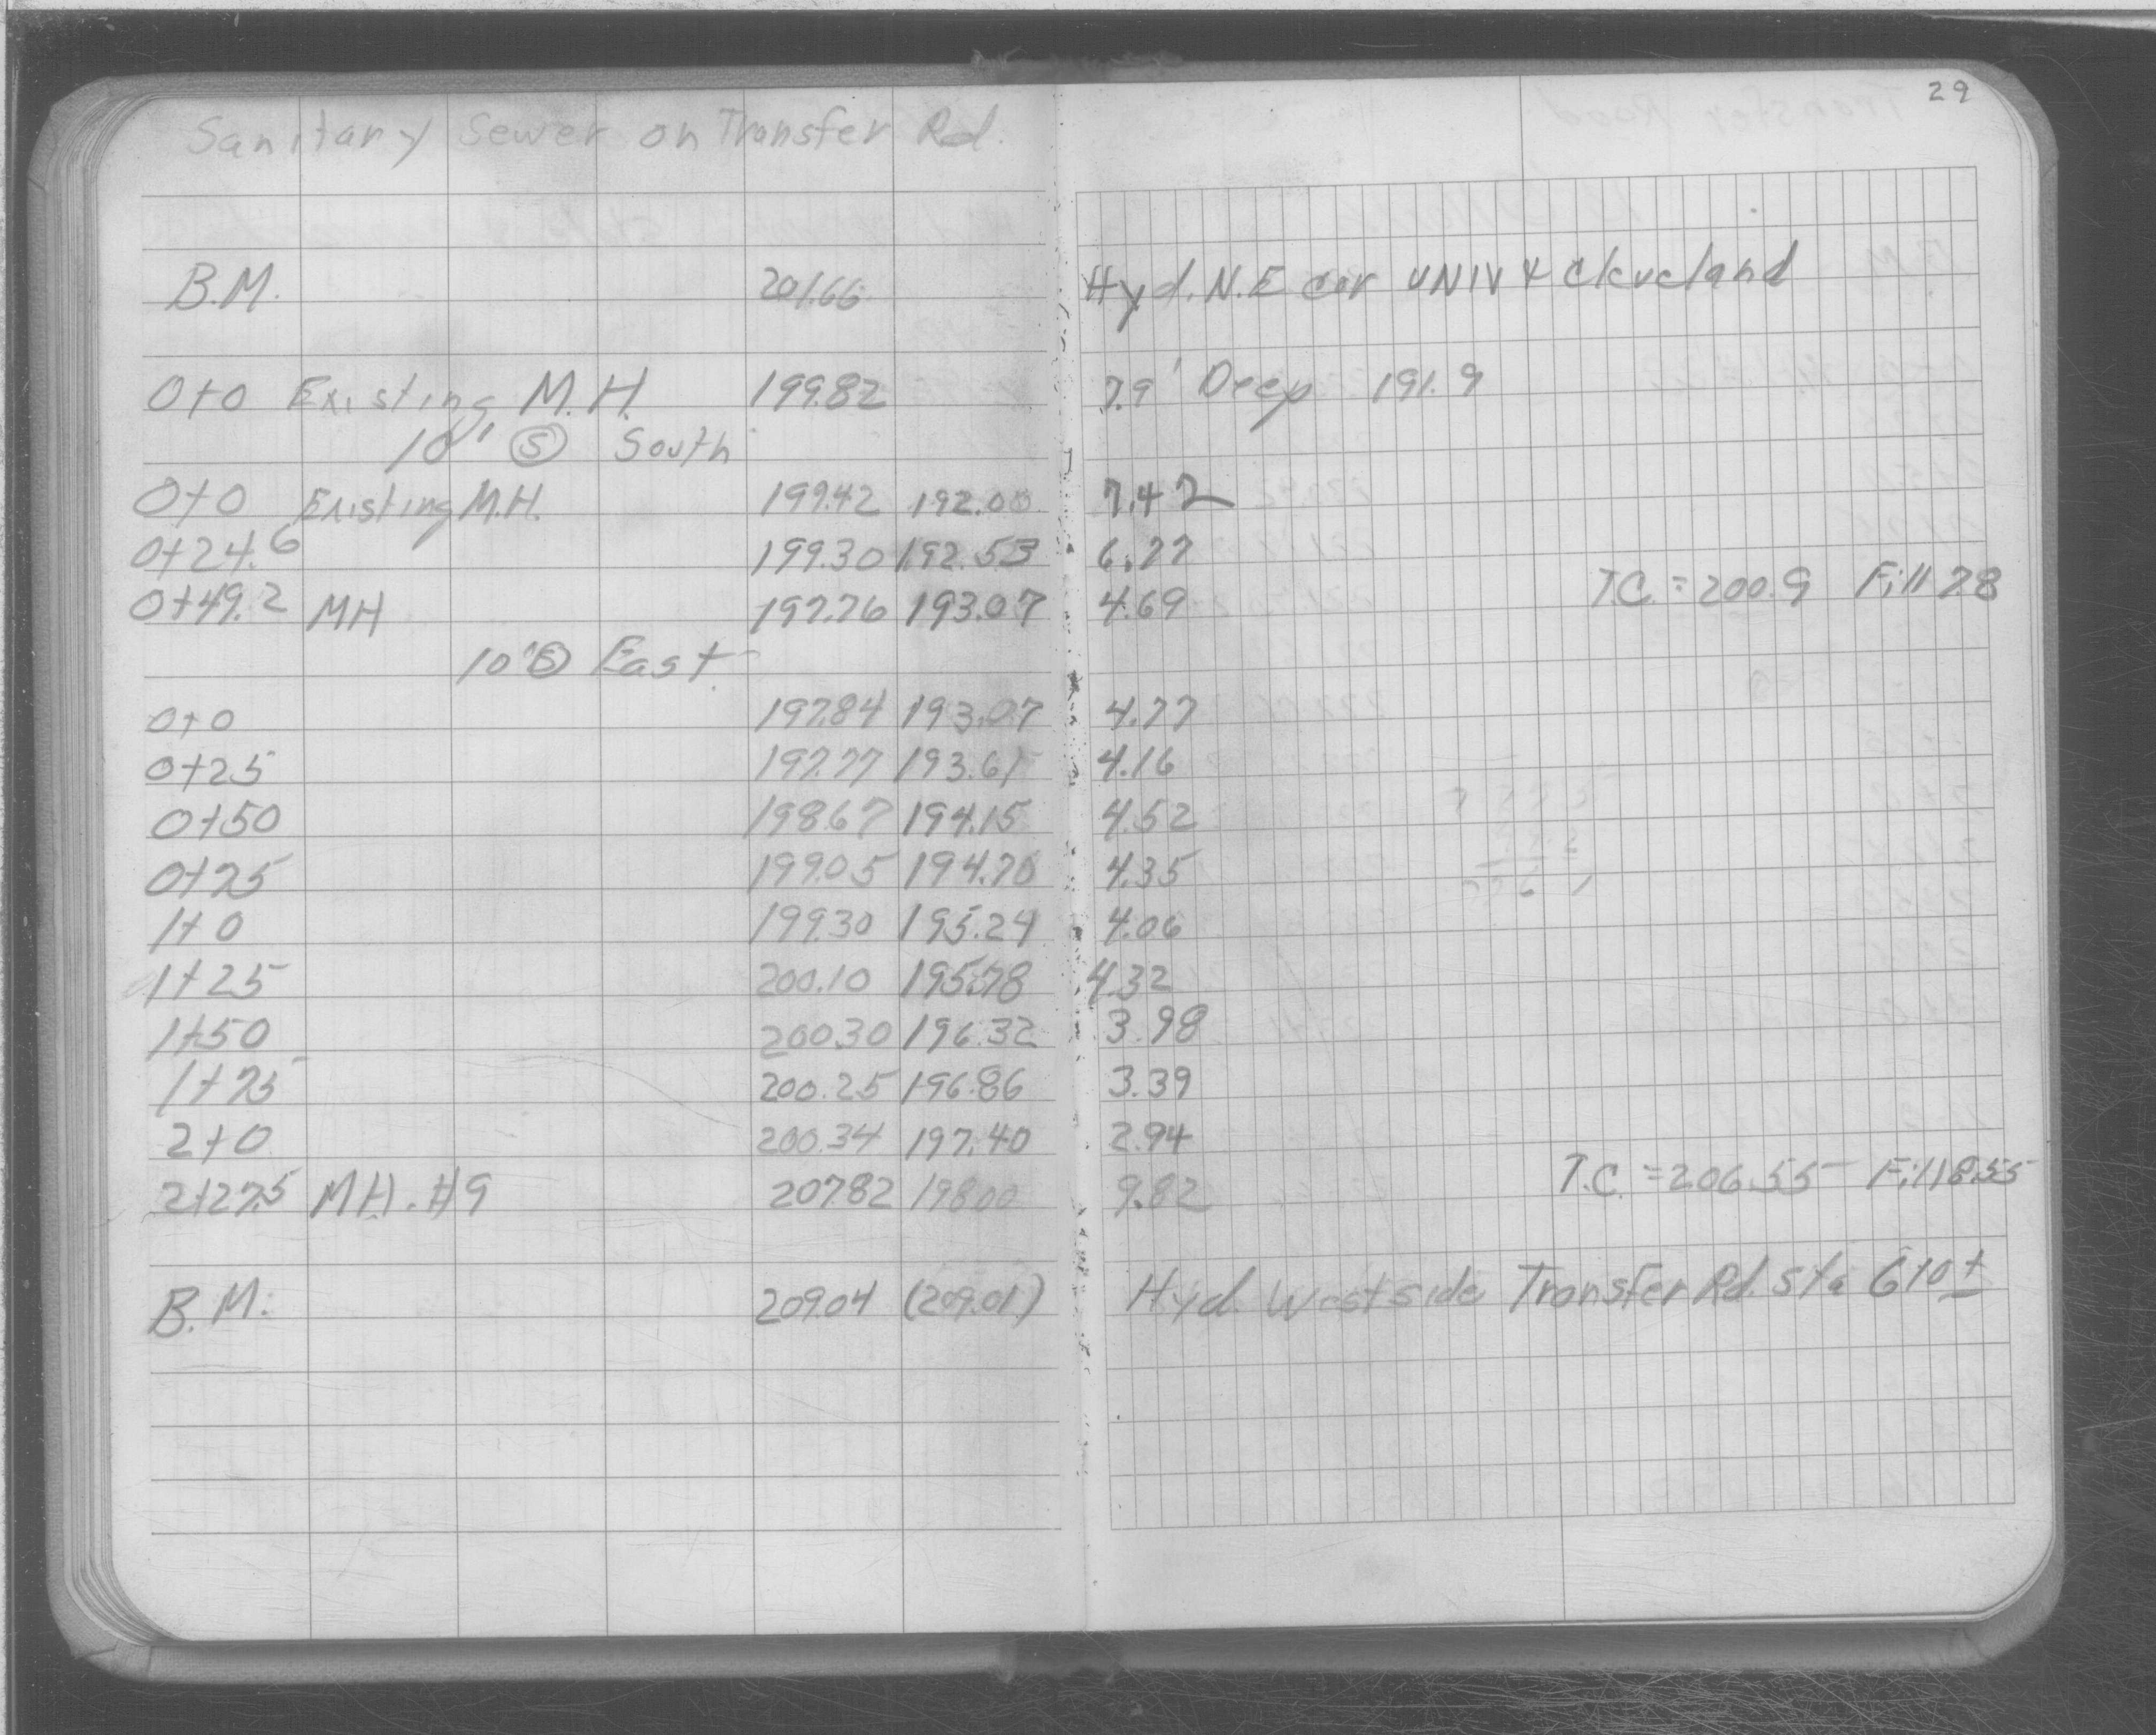 29
Sanitary Sewer on Transfer Rd.
B.M. 201.66 Hyd. N.E cor UNIV & Cleveland
0+0 Existing M.H. 199.82 7.9' Deep 191.9
10' Ⓢ South
0+0 Existing M.H. 199.42 192.00 7.42
0+24.6 199.30 192.53 6.77
0+49.2 MH 197.76 193.07 4.69 T.C. = 200.9 Fill 28
10' Ⓢ East
0+0 197.84 193.07 4.77
0+25 197.77 193.61 4.16
0+50 198.67 194.15 4.52
0+75 199.05 194.70 4.35
1+0 199.30 195.24 4.06
1+25 200.10 195.78 4.32
1+50 200.30 196.32 3.98
1+75 200.25 196.86 3.39
2+0 200.34 197.40 2.94
2+27.5 MH. #9 207.82 198.00 9.82 T.C. = 206.55 Fill 8.55
B.M. 209.04 (209.01) Hyd. West side Transfer Rd. Sta 6+0±